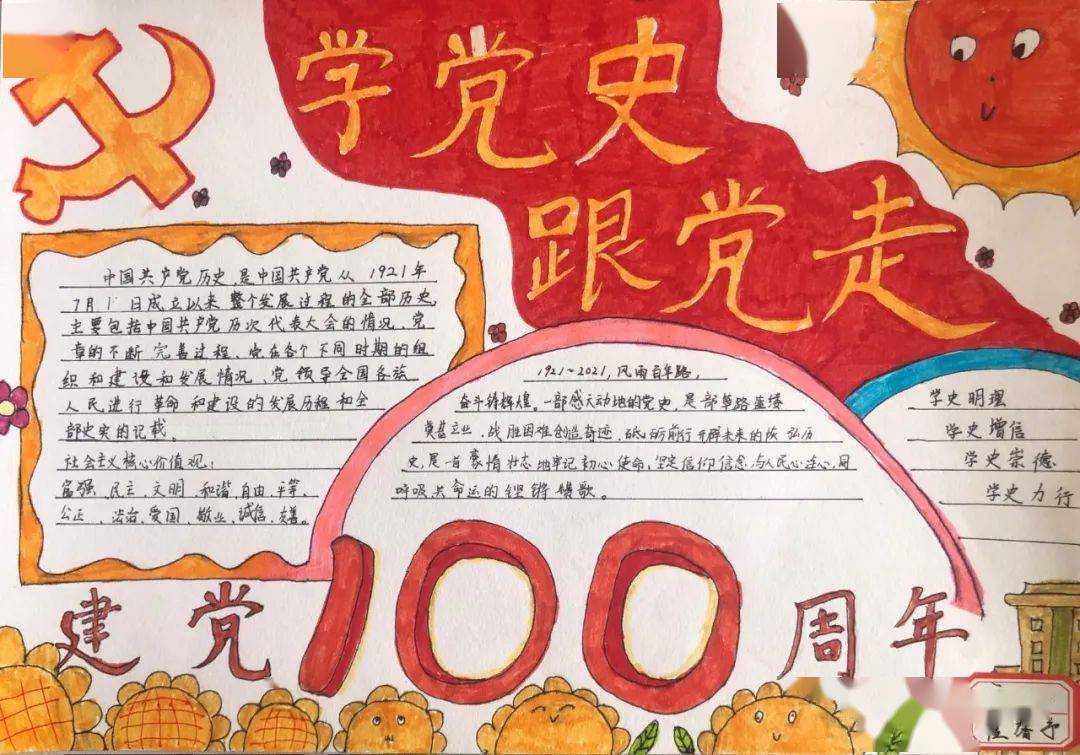 学党史
跟党走
中国共产党历史,是中国共产党从1921年
7月1日成立以来整个发展过程的全部历史
主要包括中国共产党历次代表大会的情况、党
章的不断完善过程、党在各个不同时期的组
织和建设和发展情况、党领导全国各族
人民进行革命和建设的发展历程和全
部史实的记载。
社会主义核心价值观:
富强、民主、文明、和谐、自由、平等、
公正、法治、爱国、敬业、诚信、友善。
1921~2021,风雨百年路,
奋斗铸辉煌。一部感天动地的党史,是部筚路蓝缕
奠基立业、战胜困难创造奇迹、砥砺前行开辟未来的恢弘历
史,是一首豪情壮志地牢记初心使命,坚定信仰信念,与人民心连心、同
呼吸共命运的铿锵赞歌。
学史明理
学史增信
学史崇德
学史力行
建党100周年